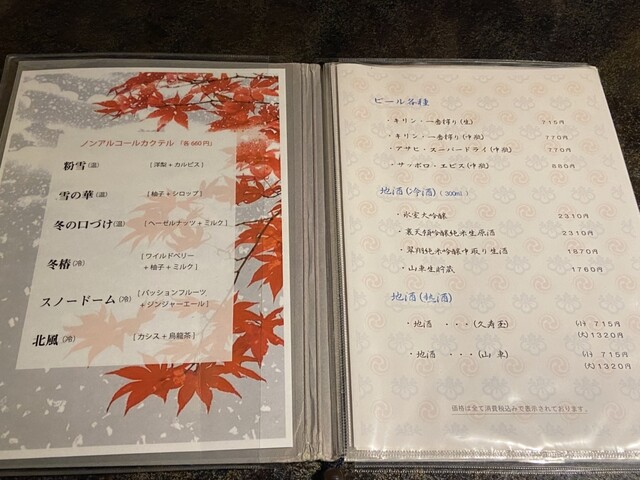 ノンアルコールカクテル 「各660円」
粉雪(温) [洋梨+カルピス]
雪の華(温) [柚子+シロップ]
冬の口づけ(温) [ヘーゼルナッツ+ミルク]
冬椿(冷) [ワイルドベリー
+柚子+ミルク]
スノードーム(冷) [パッションフルーツ
+ジンジャーエール]
北風(冷) [カシス+烏龍茶]
ビール各種
・キリン・一番搾り(生) 715円
・キリン・一番搾り(中瓶) 770円
・アサヒ・スーパードライ(中瓶) 770円
・サッポロ・エビス(中瓶) 880円
地酒(冷酒)(300ml)
・氷室大吟醸 2310円
・裏天領吟醸純米生原酒 2310円
・翠翔純米吟醸中取り生酒 1870円
・山車生貯蔵 1760円
地酒(熱酒)
・地酒 ・・・(久寿玉) (小) 715円
(大) 1320円
・地酒 ・・・(山車) (小) 715円
(大) 1320円
価格は全て消費税込みで表示されております。